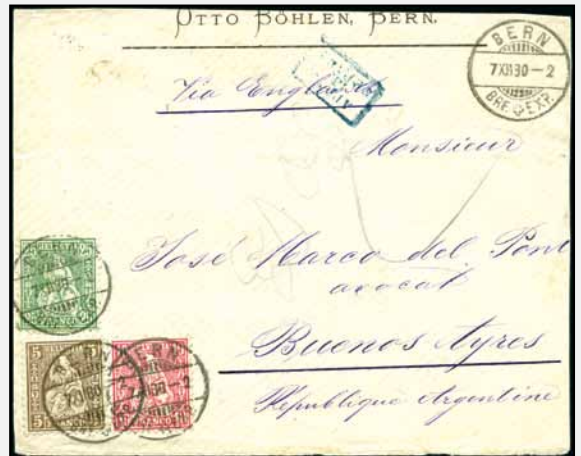 OTTO BÖHLEN, BERN.
BERN
7 XII 80 – 2
BRF. EXP.
Via England
Monsieur
José Marco del Pont
avocat
Buenos Ayres
République Argentine
FRANCO
BERN
5 5
FRANCO
BERN
FRANCO